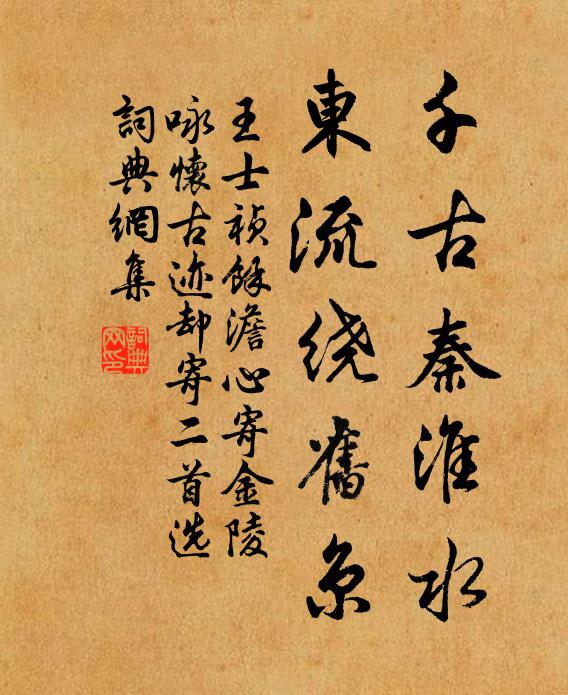 千古秦淮水
東流绕舊京
王士祯馀澹心寄金陵
咏懷古迹却寄二首选
詞典網集
詞典网印